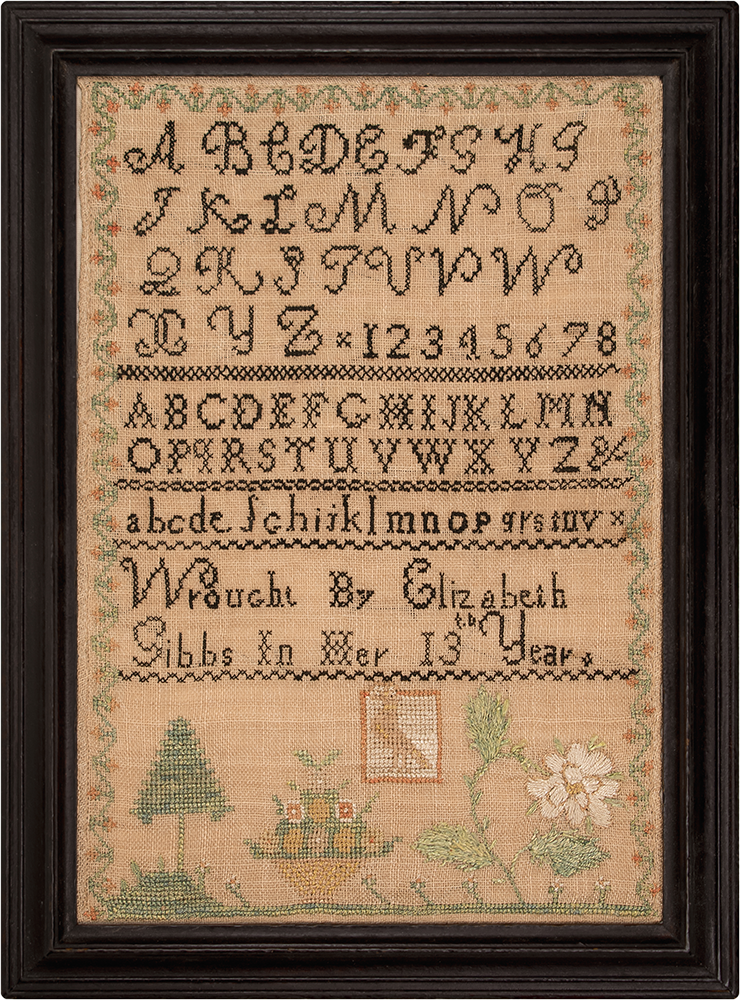 A B C D E F G H I
J K L M N O P
Q R S T U V W
X Y Z × 1 2 3 4 5 6 7 8
A B C D E F G H I J K L M N
O P q R S T U V W X Y Z &
a b c d e f g h i j k l m n o p q r s t u v ×
Wrought By Elizabeth
Gibbs In Her 13th Year.